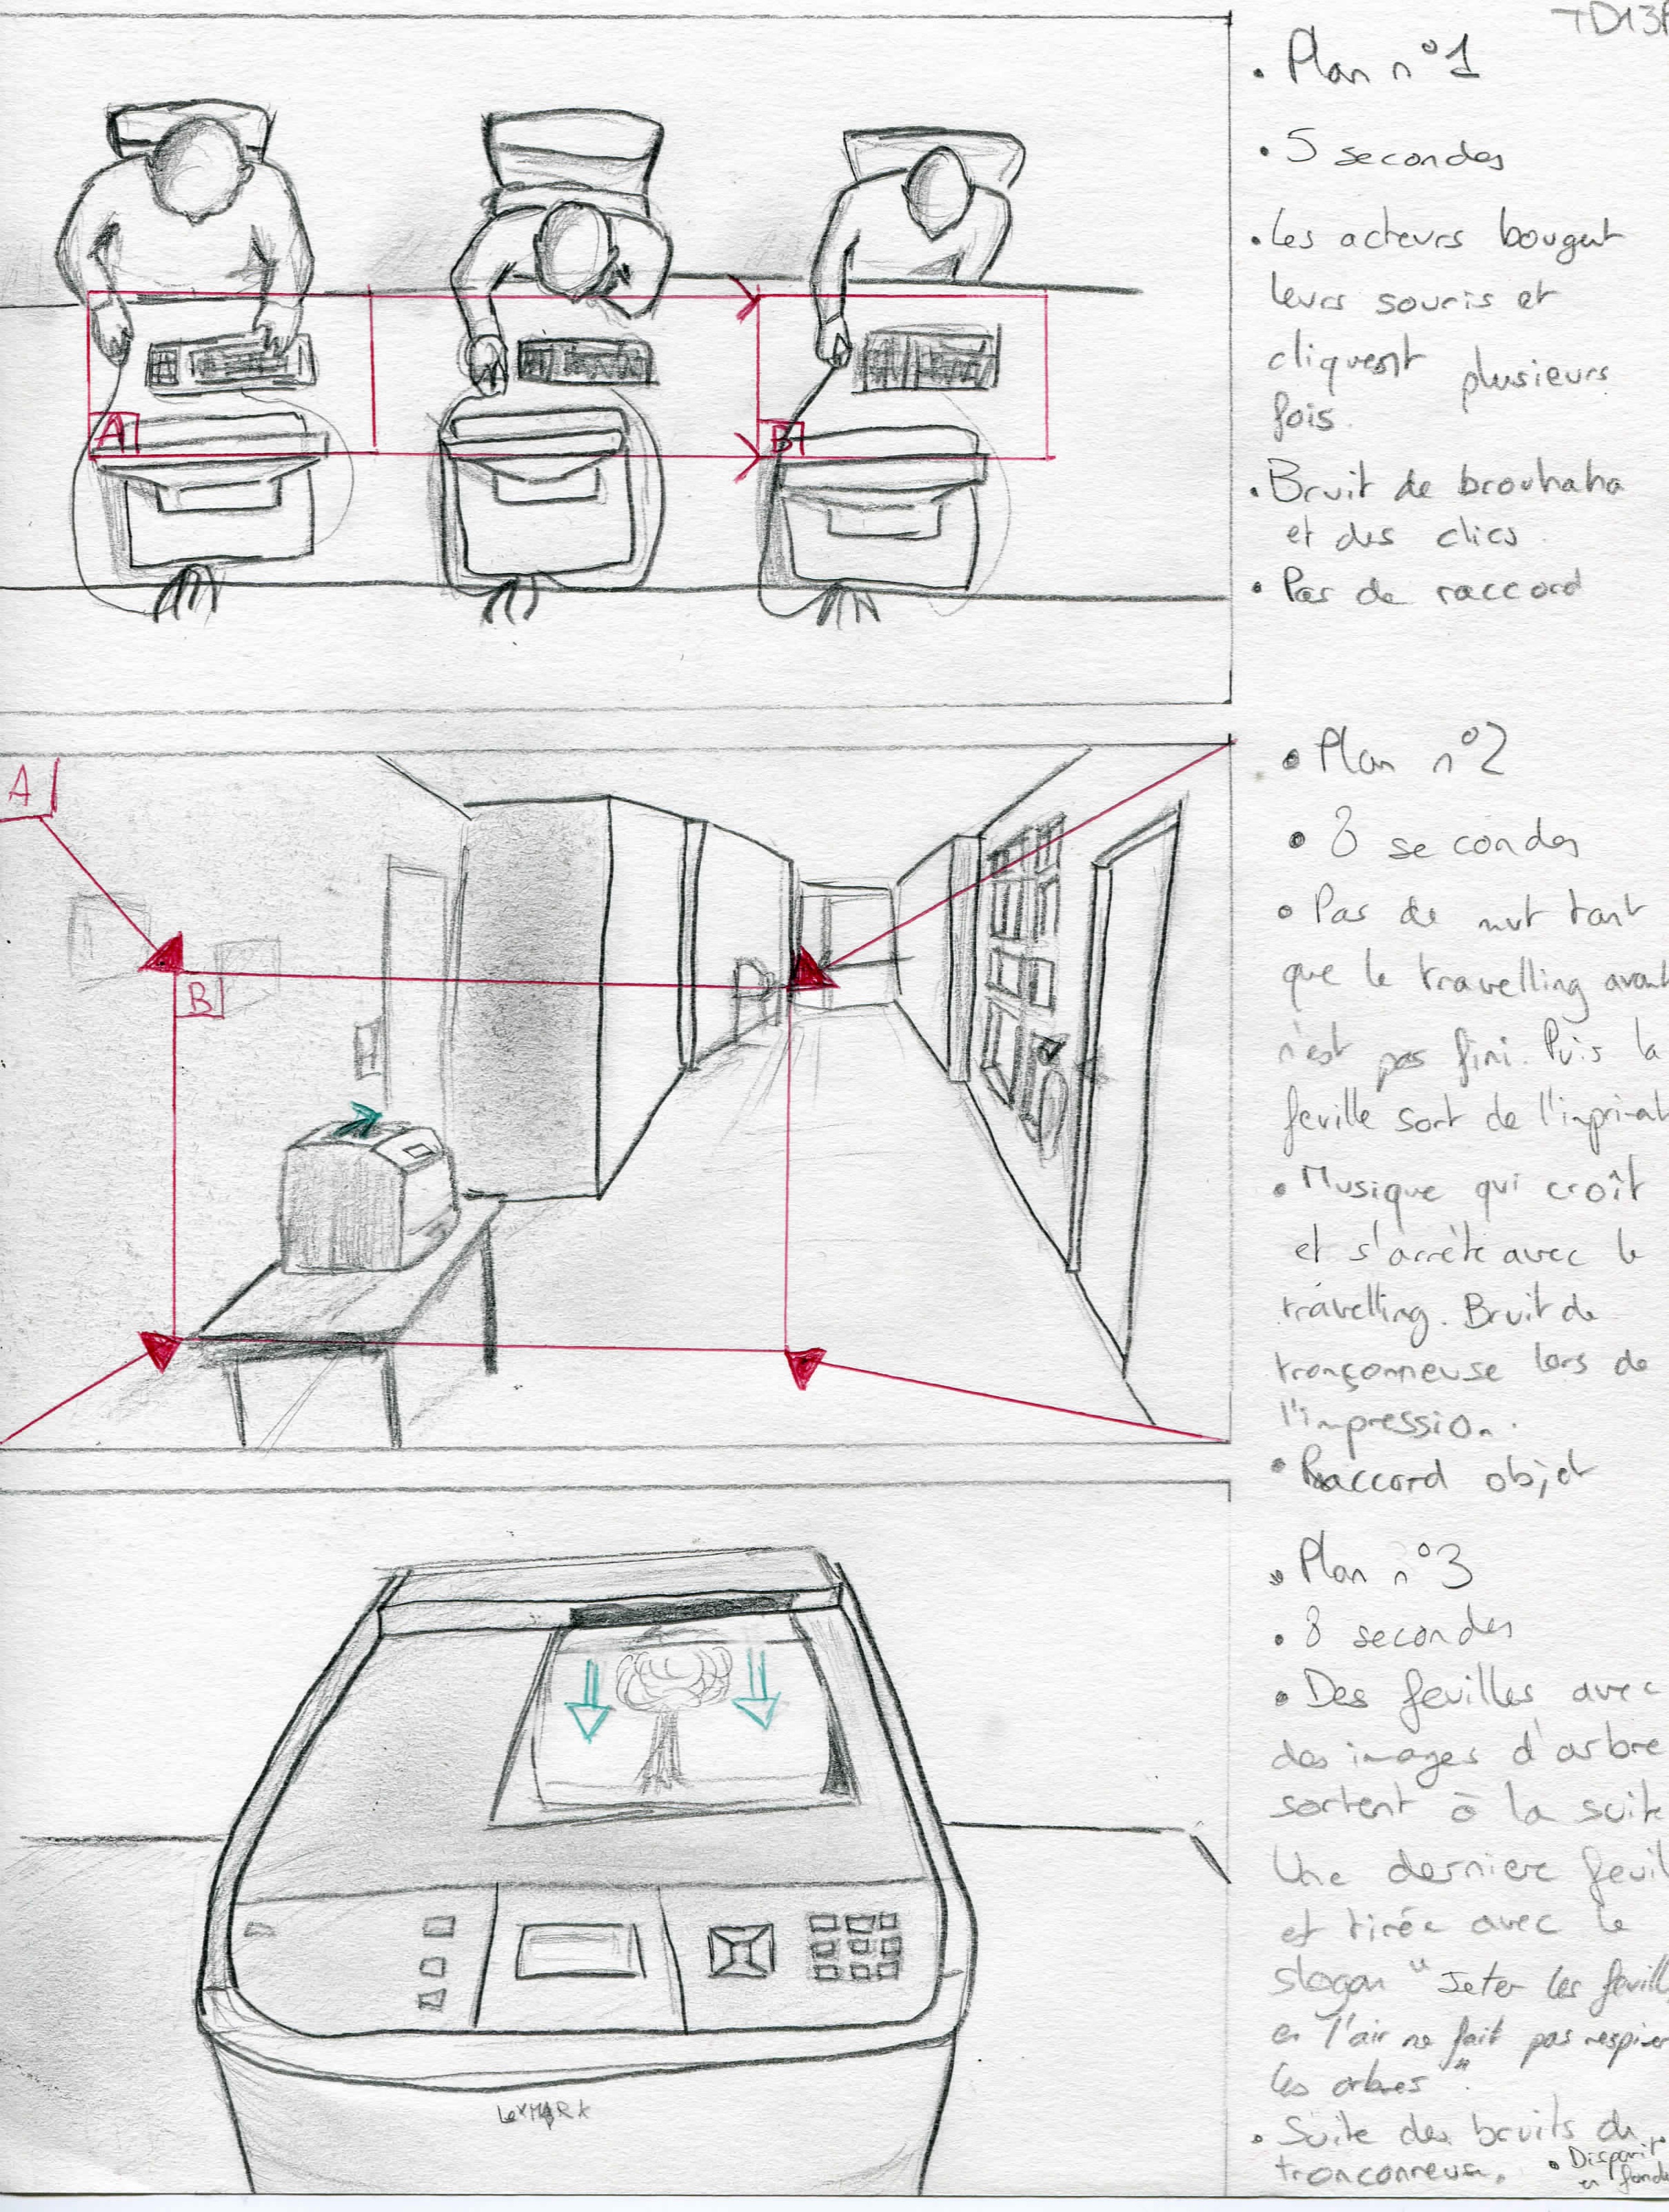 TD13
• Plan n°1
• 5 secondes
• Les acteurs bougent
leurs souris et
cliquent plusieurs
fois.
• Bruit de brouhaha
et des clics.
• Pas de raccord
A
B
• Plan n°2
• 8 secondes
• Pas de mvt tant
que le travelling avant
n'est pas fini. Puis la
feuille sort de l'imprimat
• Musique qui croît
et s'arrête avec le
travelling. Bruit de
tronçonneuse lors de
l'impression.
• Raccord objet
A
B
• Plan n°3
• 8 secondes
• Des feuilles avec
des images d'arbre
sortent à la suite
Une derniere feuil
et tirée avec le
slogan "Jeter les feuill
en l'air ne fait pas respirer
les arbres".
• Suite des bruits du
tronconneuse.
• Disparit
en fondu
LEXMARK